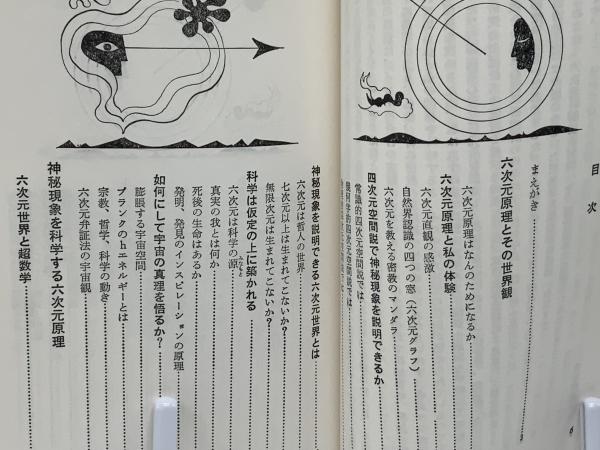 目次
まえがき
六次元原理とその世界観
六次元原理はなんのためになるか
六次元原理と私の体験
六次元直観の感激
自然界認識の四つの窓（六次元グラフ）
六次元を教える密教のマンダラ
四次元空間説で神秘現象を説明できるか
常識的四次元空間説では
幾何学的四次元空間説では
神秘現象を説明できる六次元世界とは
六次元は哲人の世界
七次元以上は生まれてこないか？
無限次元は生まれてこないか？
科学は仮定の上に築かれる
六次元は科学の源みなもと
真実の我とは何か
死後の生命はあるか
発明、発見のインスピレーションの原理
如何にして宇宙の真理を悟るか？
膨脹する宇宙空間
プランクのhエネルギーとは
宗教、哲学、科学の動き
六次元弁証法の宇宙観
神秘現象を科学する六次元原理
六次元世界と超数学
6